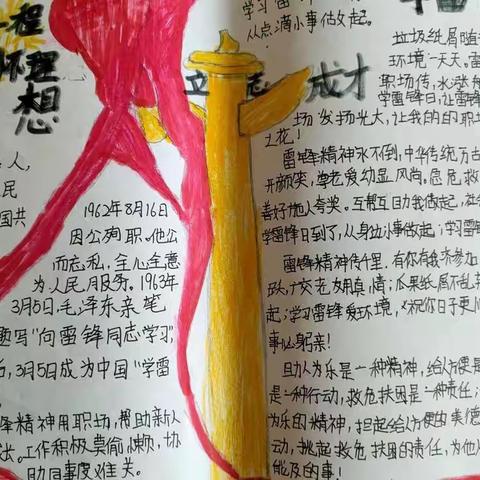 程
怀理
想
立志成才
学习雷
从点滴小事做起。
人,
民
国共
1962年8月16日
因公殉职。他公
而忘私,全心全意
为人民服务。1963年
3月5日,毛泽东亲笔
题写"向雷锋同志学习",
后,3月5日成为中国"学雷
锋精神用职场,帮助新人
工作积极莫偷懒,协
助同事度难关。
垃圾纸屑随
环境一天天。雷
职场传,水涨船
学雷锋日,让雷锋
场发扬光大,让我的的职场
之花!
雷锋精神永不倒,中华传统万古
开颜笑,尊老爱幼显风尚。急危救
善好施人夸奖。互帮互日为我做起,
学雷锋日到了,从身边小事做起;学习雷锋
雷锋精神传千里,有你有我齐参加
花用真情;瓜果纸屑不乱
起;学习雷锋爱环境,祝你日子更
事必躬亲!
助人为乐是一种精神,给人方便是
是一种行动,救危扶困是一种责任;
为乐的精神,担起给人方便的美德
动,挑起救危扶困的责任,为他人
能及的事!